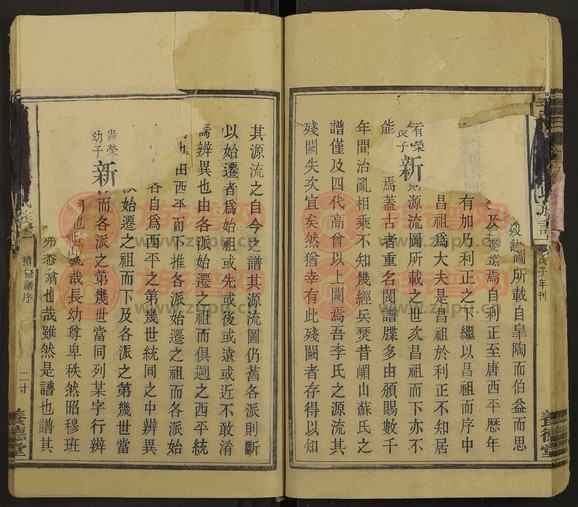 殘缺圖所載自皐陶而伯益而思
自利正至唐西平歷年
有加乃利正之下繼以昌祖而序中
昌祖爲大夫是昌祖於利正不知居
源流圖所載之世次昌祖而下亦不
能
焉蓋古者重名閥譜牒多由頒賜數千
年間治亂相乘不知幾經兵燹昔嵋山蘇氏之
譜僅及四代高曾以上闕焉吾李氏之源流其
殘闕失次宜矣然猶幸有此殘闕者存得以知
其源流之自今之譜其源流圖仍舊各派則斷
以始遷者爲始祖或先或後或遠或近不敢淆
辨異也由各派始遷之祖而俱遡之西平統
也由西平而下推各派始遷之祖而各派始
各自爲西平之第幾世統同之中辨異
始遷之祖而下及各派之第幾世當
而各派之第幾世當同列某字行辨
哉長幼尊卑秩然昭穆班
也哉雖然是譜也譜其
新
新
長子
貴榮
幼子
族譜
戊子年刊
養德堂
譜序
二
養德堂